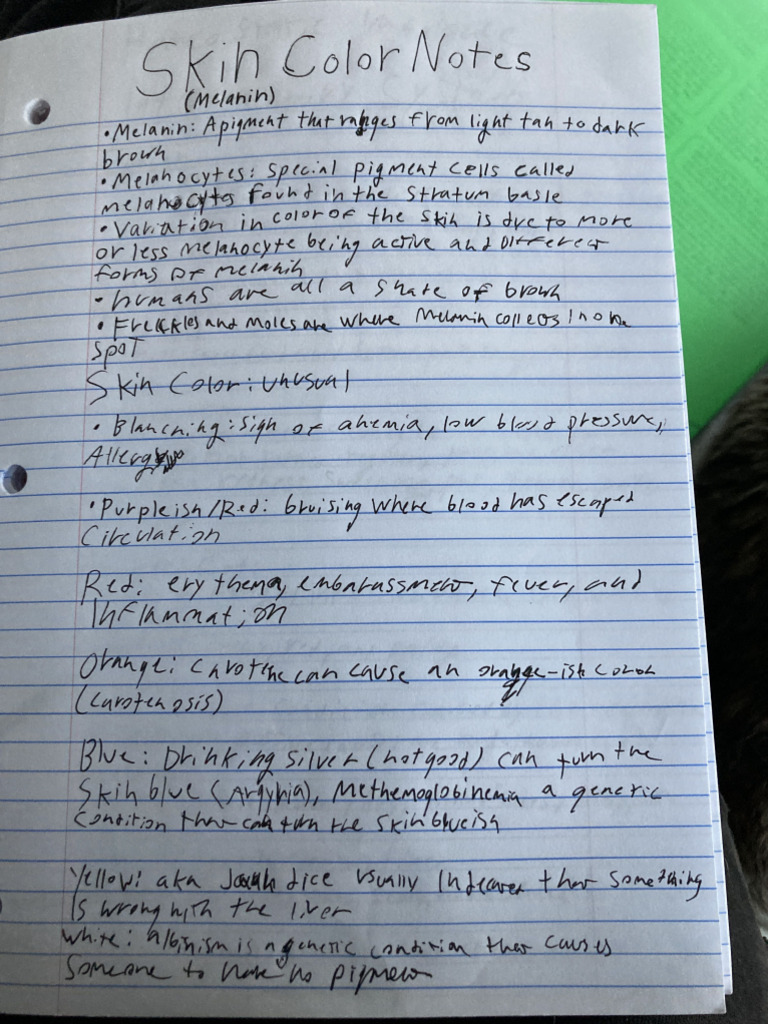 Skin Color Notes
(Melanin)
• Melanin: A pigment that ranges from light tan to dark
brown
• Melanocytes: special pigment cells called
melanocytes found in the stratum basle
• Variation in color of the skin is due to more
or less melanocyte being active and different
forms of melanin
• humans are all a shade of brown
• Freckles and Moles are where Melanin collects in one
spot
Skin Color: unusual
• Blanching: sign of anemia, low blood pressure,
Allergy
• Purpleish/Red: bruising where blood has escaped
Circulation
Red: erythema, embarassment, fever, and
Inflammation
Orange: carotene can cause an orange-ish color
(carotenosis)
Blue: Drinking silver (not good) can turn the
Skin blue (Argyria), Methemoglobinemia a genetic
condition that can turn the skin blueish
Yellow: aka Jaundice usually Indicates that something
is wrong with the liver
White: albinism is a genetic condition that causes
someone to have no pigment